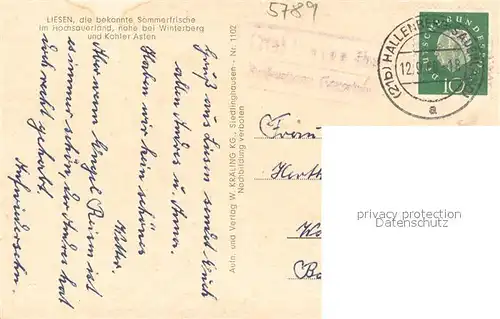 5789
LIESEN, die bekannte Sommerfrische
im Hochsauerland, nahe bei Winterberg
und Kahler Asten
Gruß aus Liesen sendet Euch
allen Andres u. Anna.
Haben wir kein schönes
Wetter.
Aber wenn Engel Reisen ist
es immer schön, der Andres hat
auch recht gehabt.
Aufwiedersehn.
Auln. und Verlag W. KRÄLING KG., Siedlinghausen - Nr. 1102
Nachbildung verboten
(21b) HALLENBERG
12.9
18
a
DEUTSCHE BUNDESPOST
10
Frau
Herth
privacy protection
Datenschutz